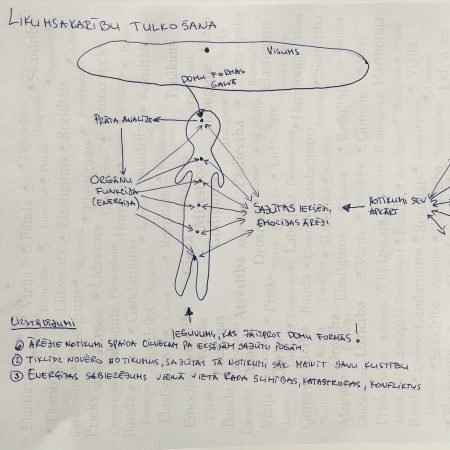 LIKUMSAKARĪBU TULKOŠANA
VISUMS
DOMU FORMAS
GALVĀ
PRĀTA ANALĪZE
ORGĀNU
FUNKCIJA
(ENERĢIJA)
SAJŪTAS IEKŠĒJI,
EMOCIJAS ĀRĒJI
NOTIKUMI SEV
APKĀRT
IEGUVUMS, KAS JĀIZPROT DOMU FORMĀS!
UZSTĀDĪJUMI
① ĀRĒJIE NOTIKUMI SPAIDA CILVĒKAM PA IEKŠĒJĀM SAJŪTU POGĀM.
② TIKLĪDZ NOVĒRO NOTIKUMUS, SAJŪTAS TĀ NOTIKUMI SĀK MAINĪT SAVU KUSTĪBU
③ ENERĢIJAS SABIEZĒJUMS VIENĀ VIETĀ RADA SLIMĪBAS, KATASTROFAS, KONFLIKTUS